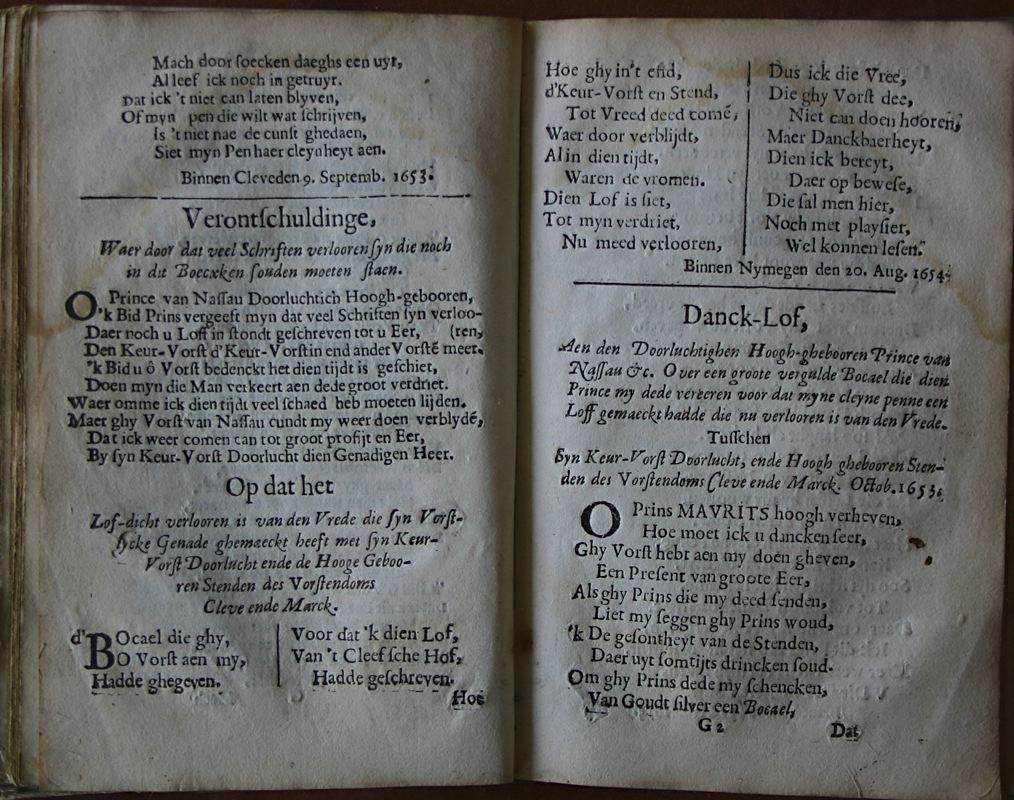 Mach door soecken daeghs een uyt,
Al leef ick noch in getruyr.
Dat ick 't niet can laten blyven,
Of myn pen die wilt wat schrijven,
Is 't niet nae de cunst ghedaen,
Siet myn Pen haer cleynheyt aen.
Binnen Cleveden 9. Septemb. 1653.
Verontschuldinge,
Waer door dat veel Schriften verlooren syn die noch
in dit Boecxken souden moeten staen.
O Prince van Nassau Doorluchtich Hoogh-gebooren,
'k Bid Prins vergeeft myn dat veel Schriften syn verloo-
Daer noch u Loff in stondt geschreven tot u Eer, (ren,
Den Keur-Vorst d'Keur-Vorstin end ander Vorstē meer.
'k Bid u ô Vorst bedenckt het dien tijdt is geschiet,
Doen myn die Man verkeert aen dede groot verdriet.
Waer omme ick dien tijdt veel schaed heb moeten lijden.
Maer ghy Vorst van Nassau cundt my weer doen verblydē,
Dat ick weer comen can tot groot profijt en Eer,
By syn Keur-Vorst Doorlucht dien Genadigen Heer.
Op dat het
Lof-dicht verlooren is van den Vrede die syn Vorst-
lycke Genade ghemaeckt heeft met syn Keur-
Vorst Doorlucht ende de Hooge Geboo-
ren Stenden des Vorstendoms
Cleve ende Marck.
d'BOcael die ghy,
O Vorst aen my,
Hadde ghegeven.
Voor dat 'k dien Lof,
Van 't Cleefsche Hof,
Hadde geschreven.
Hoe
Hoe ghy in't end,
d'Keur-Vorst en Stend,
Tot Vreed deed comē,
Waer door verblijdt,
Al in dien tijdt,
Waren de vromen.
Dien Lof is siet,
Tot myn verdriet,
Nu meed verlooren,
Dus ick die Vree,
Die ghy Vorst dee,
Niet can doen hooren,
Maer Danckbaerheyt,
Dien ick bereyt,
Daer op bewese,
Die sal men hier,
Noch met playsier,
Wel konnen lesen.
Binnen Nymegen den 20. Aug. 1654.
Danck-Lof,
Aen den Doorluchtighen Hoogh-ghebooren Prince van
Nassau &c. Over een groote vergulde Bocael die dien
Prince my dede vereeren voor dat myne cleyne penne een
Loff gemaeckt hadde die nu verlooren is van den Vrede.
Tusschen
Syn Keur-Vorst Doorlucht, ende Hoogh ghebooren Sten-
den des Vorstendoms Cleve ende Marck. Octob. 1653.
O Prins MAVRITS hoogh verheven,
Hoe moet ick u dancken seer,
Ghy Vorst hebt aen my doen gheven,
Een Present van groote Eer,
Als ghy Prins die my deed senden,
Liet my seggen ghy Prins woud,
'k De gesontheyt van de Stenden,
Daer uyt somtijts drincken soud.
Om ghy Prins dede my schencken,
Van Goudt silver een Bocael,
G 2
Dat